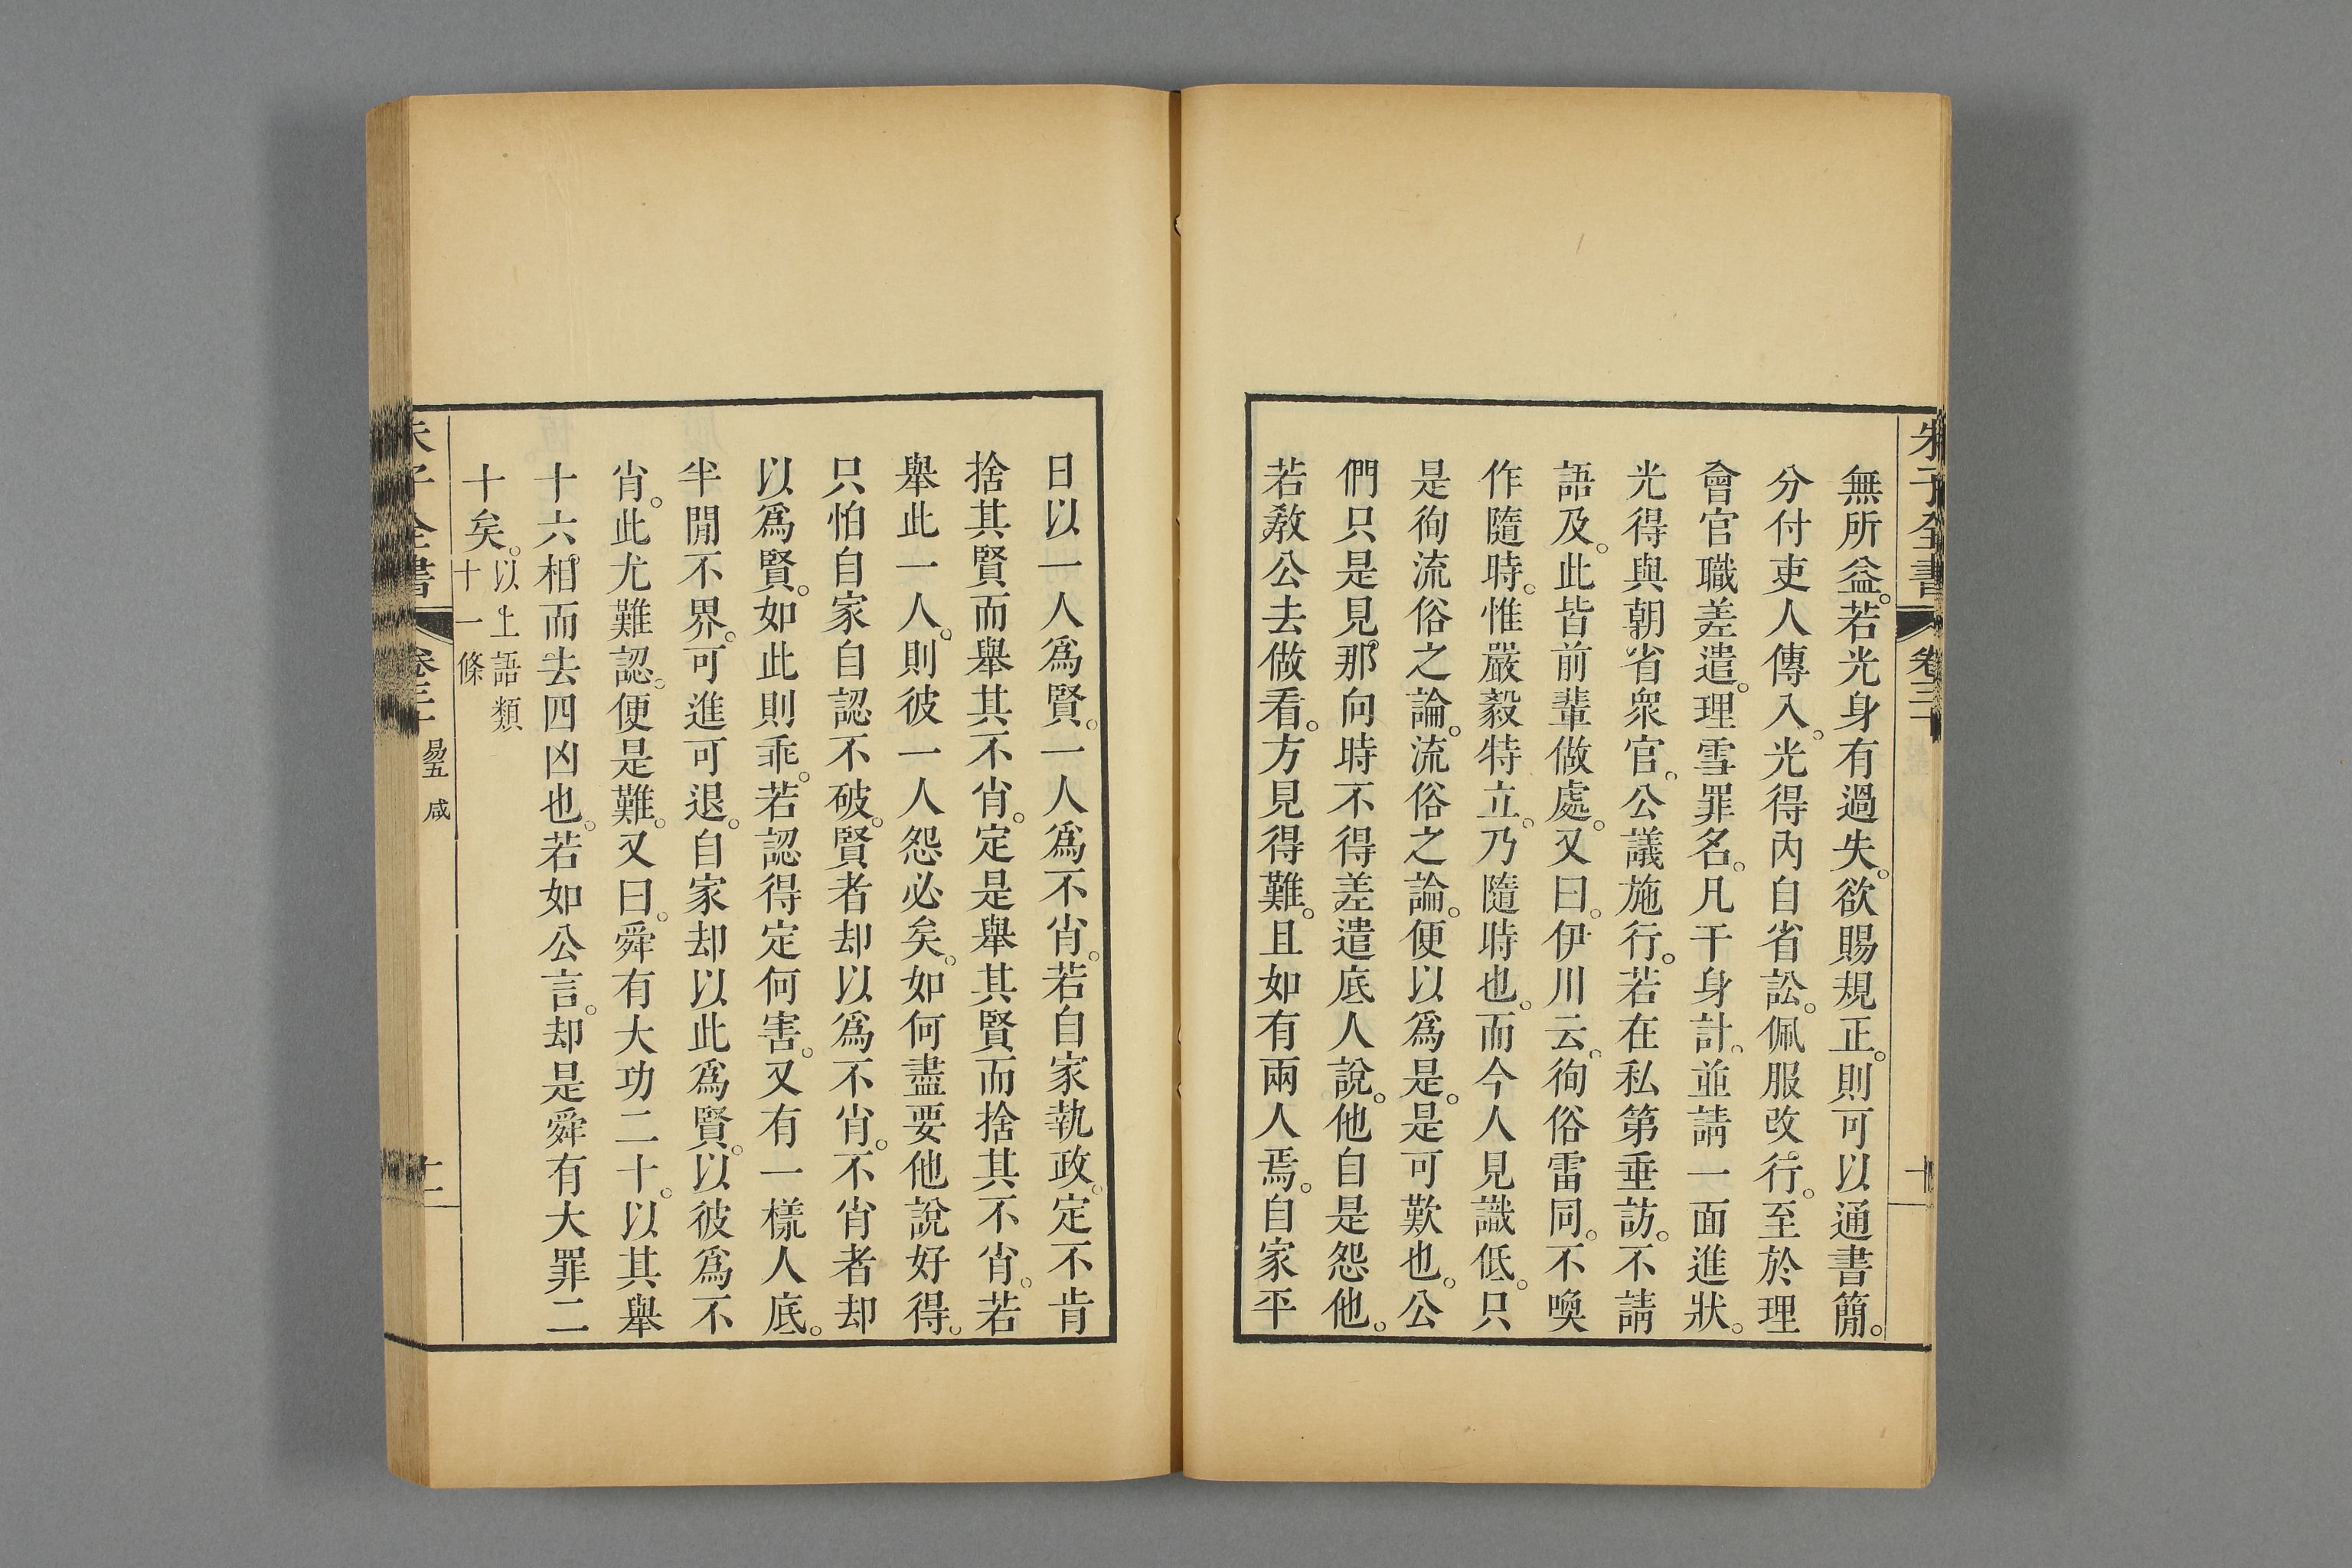 朱子全書 卷三十 十
無所益。若光身有過失。欲賜規正。則可以通書簡。
分付吏人傳入。光得內自省訟。佩服改行。至於理
會官職差遣。理雪罪名。凡干身計。並請一面進狀。
光得與朝省衆官。公議施行。若在私第垂訪。不請
語及。此皆前輩做處。又曰。伊川云。徇俗雷同。不喚
作隨時。惟嚴毅特立。乃隨時也。而今人見識低。只
是徇流俗之論。流俗之論。便以爲是。是可歎也。公
們只是見那向時不得差遣底人說。他自是怨他。
若教公去做看。方見得難。且如有兩人焉。自家平
日以一人爲賢。一人爲不肖。若自家執政。定不肯
捨其賢而舉其不肖。定是舉其賢而捨其不肖。若
舉此一人。則彼一人怨必矣。如何盡要他說好得。
只怕自家自認不破。賢者却以爲不肖。不肖者却
以爲賢。如此則乖。若認得定何害。又有一樣人底。
半閒不界。可進可退。自家却以此爲賢。以彼爲不
肖。此尤難認。便是難。又曰。舜有大功二十。以其舉
十六相而去四凶也。若如公言。却是舜有大罪二
十矣。以上語類
十一條
朱子全書 卷三十 易五 咸 十一